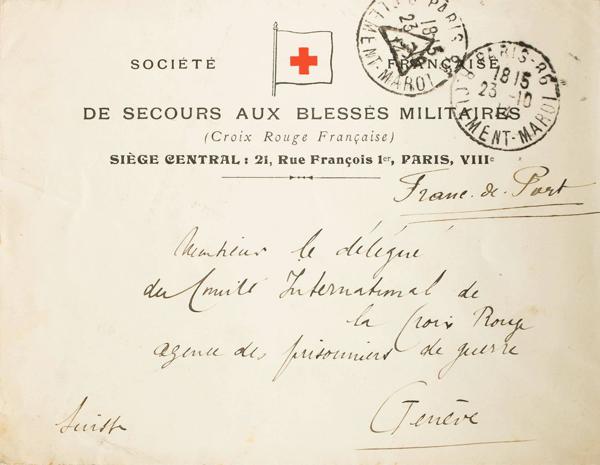 SOCIÉTÉ FRANÇAISE
DE SECOURS AUX BLESSÉS MILITAIRES
(Croix Rouge Française)
SIÈGE CENTRAL : 21, Rue François 1er, PARIS, VIIIe
PARIS
1815
23
CLEMENT-MAROT
PARIS-86
1815
23-10
R. CLEMENT-MAROT
Franc. de. Port
Monsieur le délégué
du Comité International de
la Croix Rouge
agence des prisonniers de guerre
Genève
Suisse